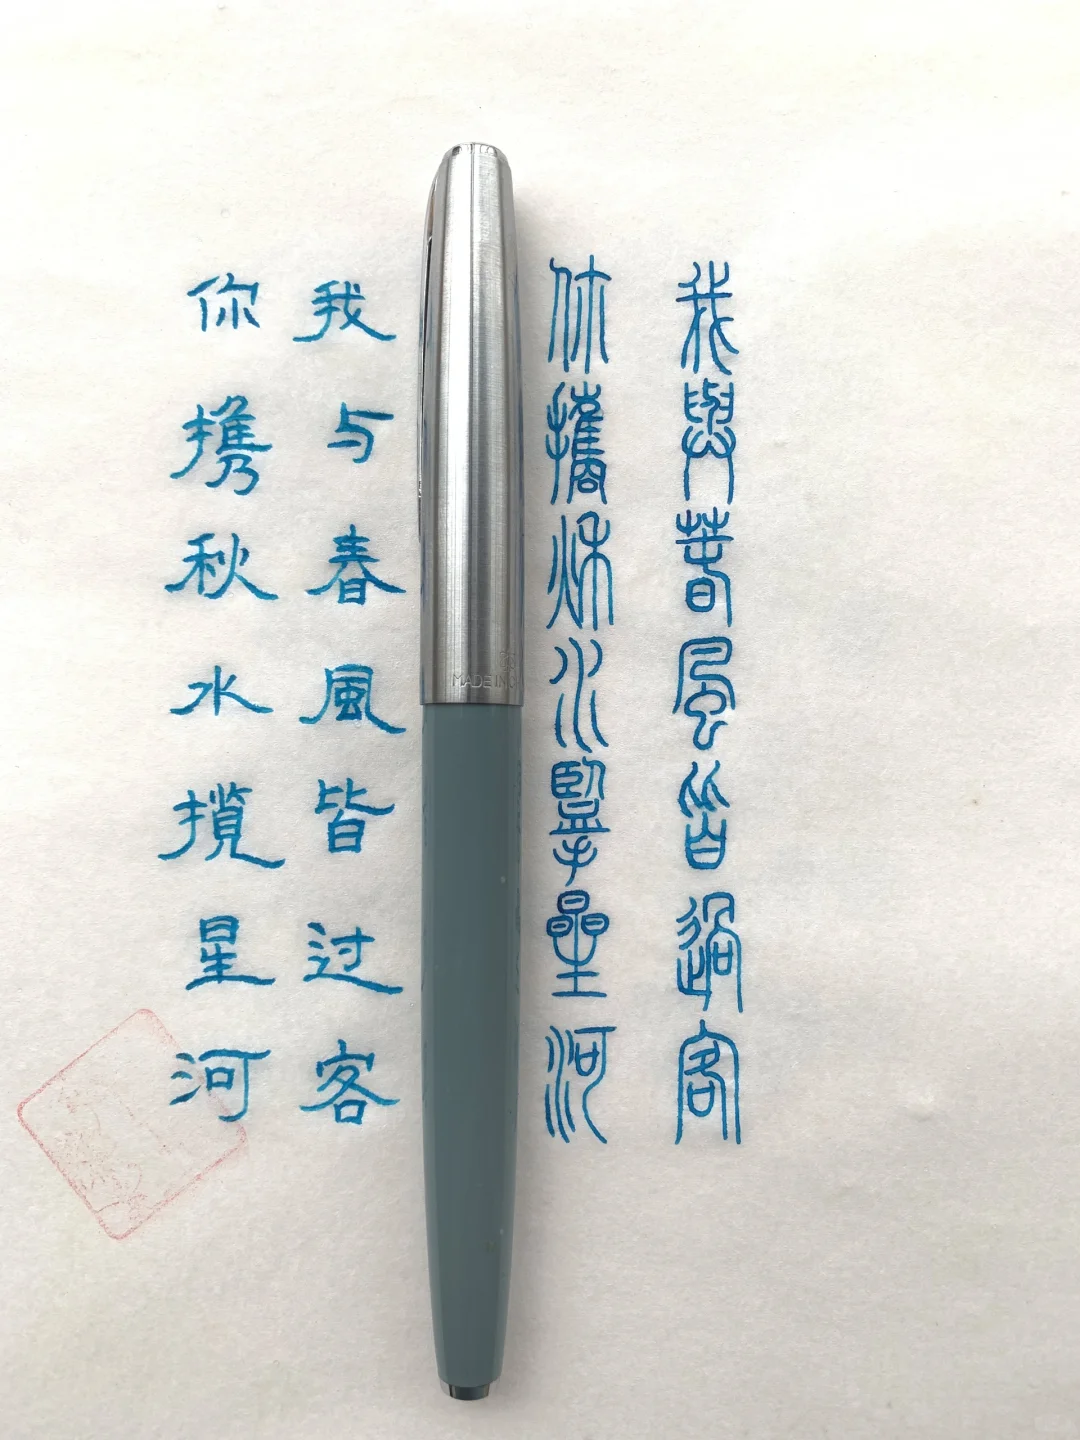 我與春風皆過客
你攜秋水擥星河
我与春風皆过客
你携秋水揽星河
MADE IN CH